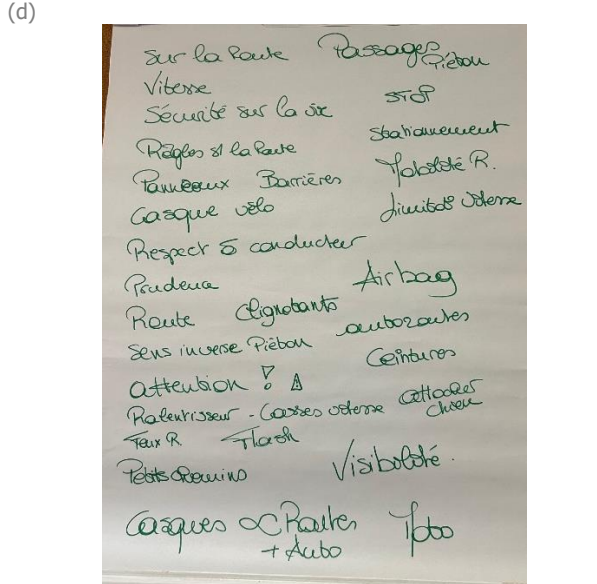 (d)
Sur la Route Passages Piéton
Vitesse
STOP
Sécurité sur la
Stationnement
Règles la Route
Mobilité R.
Panneaux Barrières
Limites vitesse
Casque vélo
Respect conducteur
Prudence
Airbag
Route Clignotants
autoroutes
Sens inverse Piéton
Ceintures
attention !
Ralentisseur - Casses vitesse attacher chien
Feux R. Flash
Petits chemins
Visibilité.
Casques Routes Moto
+ Auto